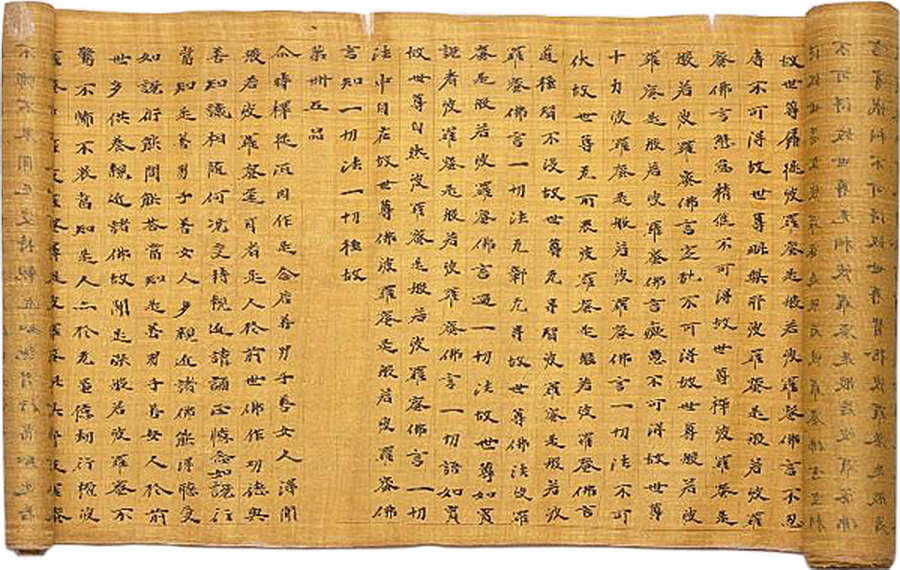 故世尊羼提波羅蜜是般若波羅蜜佛言不忍
辱不可得故世尊毗梨耶波羅蜜是般若波羅
蜜佛言懈怠精進不可得故世尊禪波羅蜜是
般若波羅蜜佛言定亂不可得故世尊般若波
羅蜜是般若波羅蜜佛言癡慧不可得故世尊
十力波羅蜜是般若波羅蜜佛言一切法不可
伏故世尊无所畏波羅蜜是般若波羅蜜佛言
道種智不沒故世尊无㝵智波羅蜜是般若波
羅蜜佛言一切法无鄣无㝵故世尊佛法波羅
蜜是般若波羅蜜佛言過一切法故世尊如實
說者波羅蜜是般若波羅蜜佛言一切語如實
故世尊自然波羅蜜是般若波羅蜜佛言一切
法中自在故世尊佛波羅蜜是般若波羅蜜佛
言知一切法一切種故
第卌五品
尒時釋提桓因作是念若善男子善女人得聞
般若波羅蜜逕耳者是人於前世佛作功德與
善知識相隨何況受持親近讀誦正憶念如說行
當知是善男子善女人多親近諸佛能得聽受
如說行能問能荅當知是善男子善女人於前
世多供養親近諸佛故聞是深般若波羅蜜不
驚不怖不畏當知是人亦於无量億劫行檀波